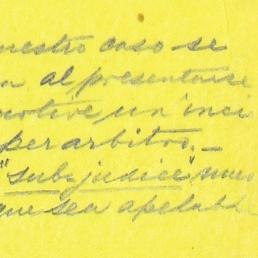 nuestro caso se
al presentarse
motive un inci
per arbitro. —
"sub-judice"
que sea apelabl